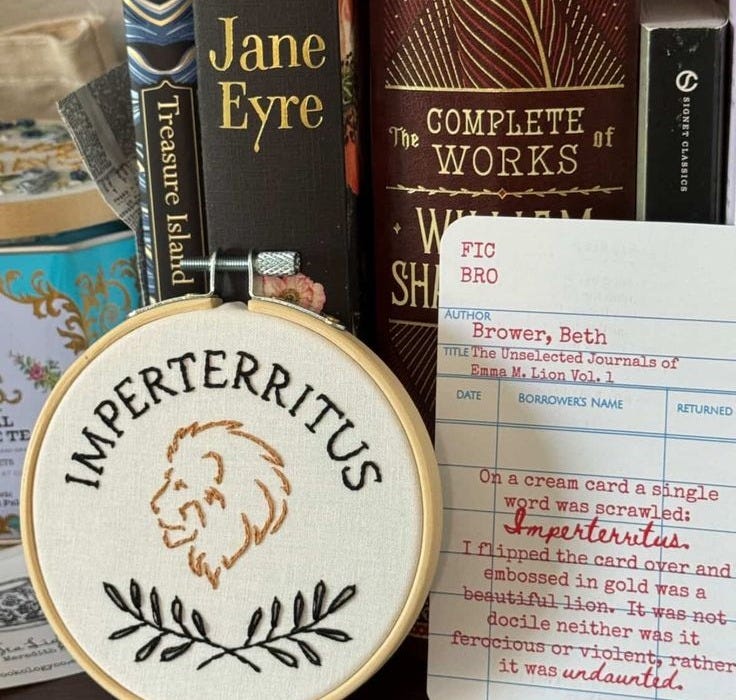 Treasure Island
Jane
Eyre
The COMPLETE of
WORKS
SIGNET CLASSICS
IMPERTERRITUS
FIC
BRO
AUTHOR
Brower, Beth
TITLE The Unselected Journals of
Emma M. Lion Vol. 1
DATE BORROWER'S NAME RETURNED
On a cream card a single
word was scrawled:
Imperterritus.
I flipped the card over and
embossed in gold was a
beautiful lion. It was not
docile neither was it
ferocious or violent, rather
it was undaunted.